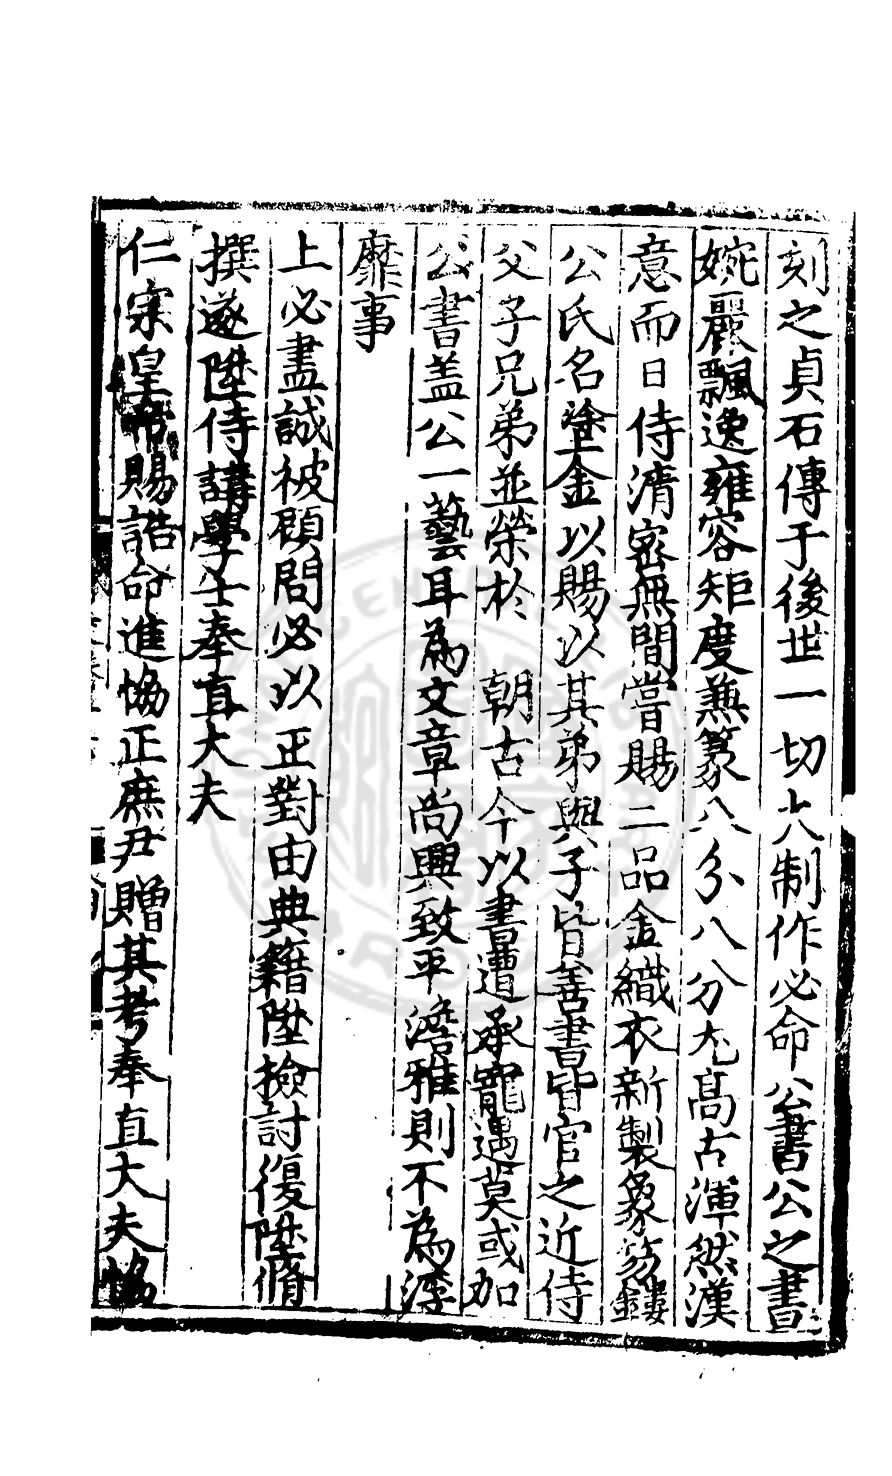 刻之貞石傳于後世一切大制作必命公書公之書
婉麗飄逸雍容矩度兼篆八分八分尤高古渾然漢
意而日侍清密無間嘗賜二品金織衣新製象笏鏤
公氏名塗金以賜以其弟與子皆善書皆官之近侍
父子兄弟並榮於 朝古今以書遭承寵遇莫或加
公書盖公一藝耳為文章尚興致平澹雅則不為浮
靡事
上必盡誠被顧問必以正對由典籍陞檢討復陞脩
撰遂陞侍講學士奉直大夫
仁宗皇帝賜誥命進恊正庶尹贈其考奉直大夫恊